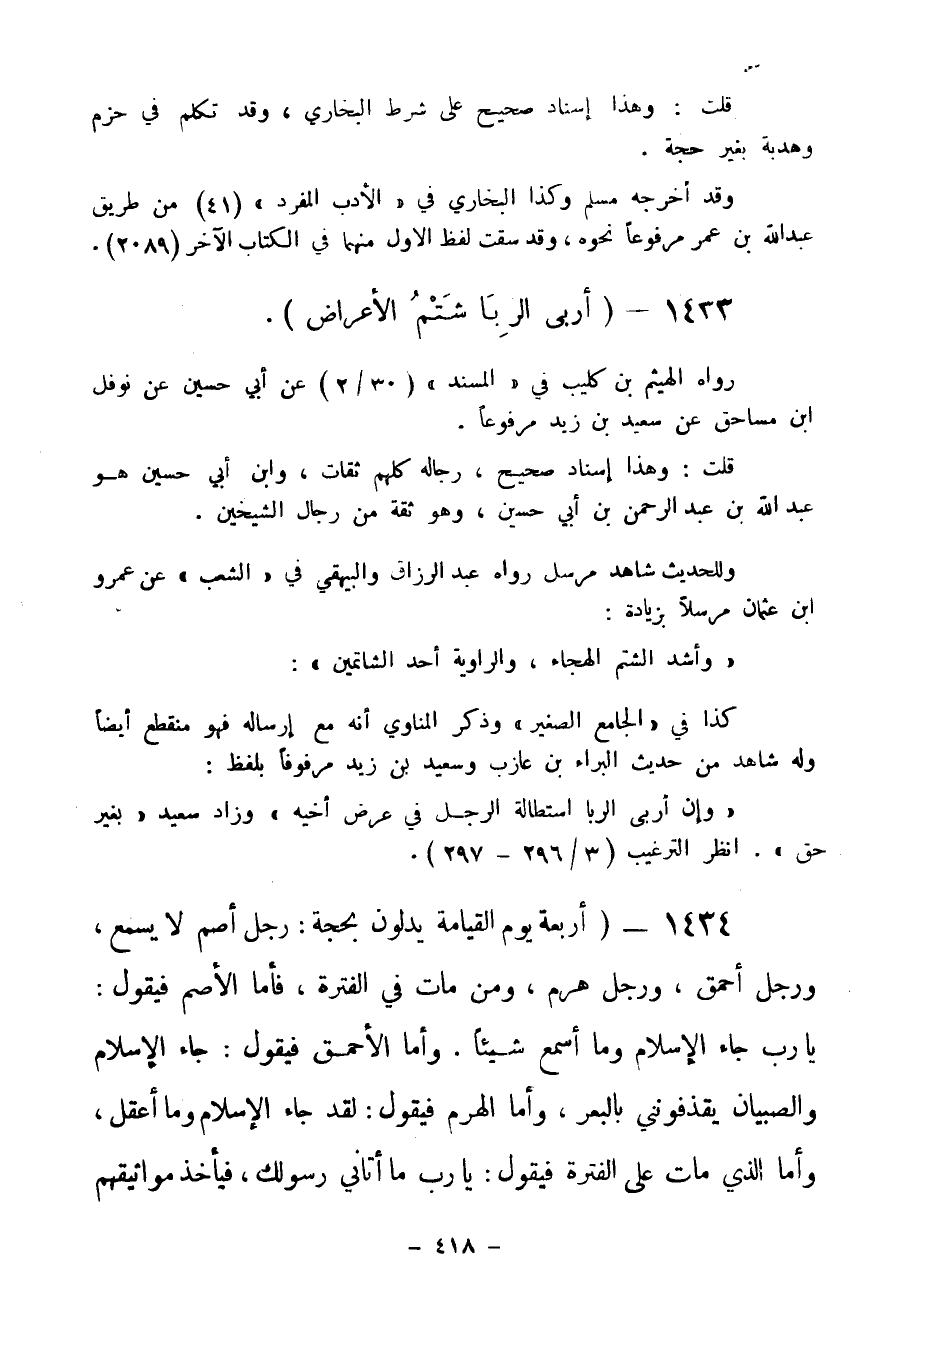 قلت : وهذا إسناد صحيح على شرط البخاري ، وقد تكلم في حزم
وهدبة بغير حجة .
وقد أخرجه مسلم وكذا البخاري في « الأدب المفرد » (٤١) من طريق
عبدالله بن عمر مرفوعاً نحوه ، وقد سقت لفظ الاول منهما في الكتاب الآخر (٢٠٨٩) .
١٤٣٣ – ( أربى الرِبَا شَتْمُ الأعراض ) .
رواه الهيثم بن كليب في « المسند » ( ٣٠ / ٢ ) عن أبي حسين عن نوفل
ابن مساحق عن سعيد بن زيد مرفوعاً .
قلت : وهذا إسناد صحيح ، رجاله كلهم ثقات ، وابن أبي حسين هــو
عبد الله بن عبد الرحمن بن أبي حسين ، وهو ثقة من رجال الشيخين .
وللحديث شاهد مرسل رواه عبد الرزاق والبيهقي في « الشعب » عن عمرو
ابن عثمان مرسلاً بزيادة :
« وأشد الشتم الهجاء ، والراوية أحد الشاتمين » :
كذا في « الجامع الصغير » وذكر المناوي أنه مع إرساله فهو منقطع أيضاً
وله شاهد من حديث البراء بن عازب وسعيد بن زيد مرفوفاً بلفظ :
« وإن أربى الربا استطالة الرجــل في عرض أخيه » وزاد سعيد « بغير
حق » . انظر الترغيب ( ٣ / ٢٩٦ – ٢٩٧ ) .
١٤٣٤ – ( أربعة يوم القيامة يدلون بحجة : رجل أصم لا يسمع ،
ورجل أحمق ، ورجل هرم ، ومن مات في الفترة ، فأما الأصم فيقول :
يا رب جاء الإسلام وما أسمع شــيئاً . وأما الأحمــق فيقول : جاء الإسلام
والصبيان يقذفونني بالبعر ، وأما الهرم فيقول : لقد جاء الإسلام وما أعقل ،
وأما الذي مات على الفترة فيقول : يا رب ما أتاني رسولك ، فيأخذ مواثيقهم
– ٤١٨ –